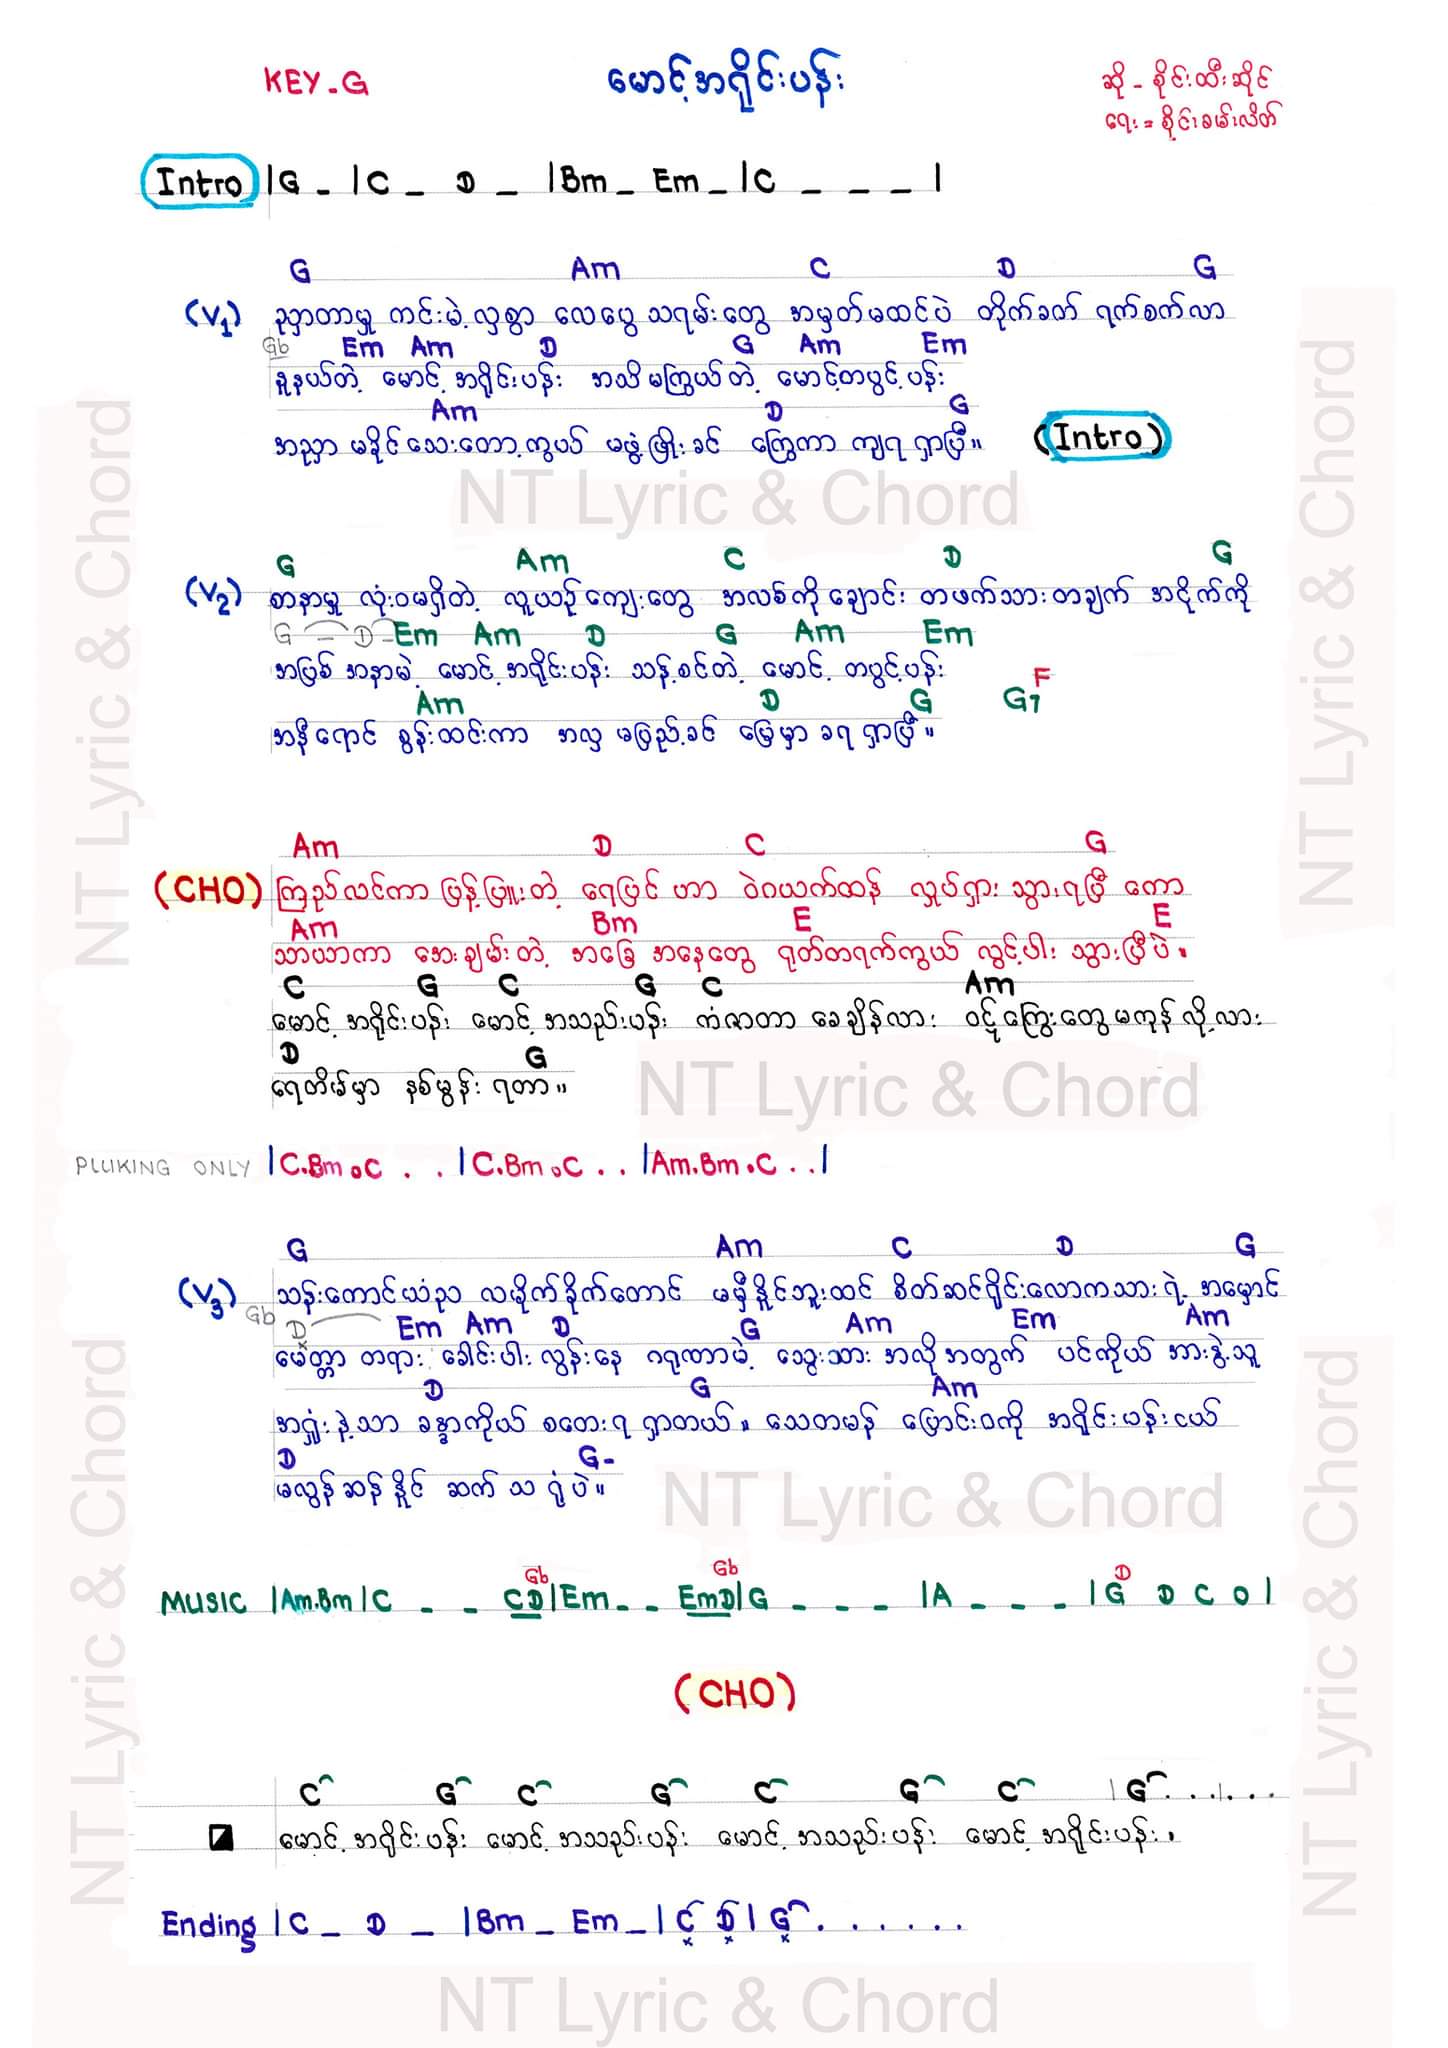 KEY-G
မောင့်အရိုင်းပန်း
ဆို - စိုင်းထီးဆိုင်
ရေး = စိုင်းခမ်းလိတ်
Intro |G - |C - D - |Bm - Em - |C - - - |
G Am C D G
(V1) ညှာတာမှု ကင်းမဲ့လှစွာ လေပွေ သရမ်းတွေ အမှတ်မထင်ပဲ တိုက်ခတ် ရက်စက်လာ
Gb Em Am D G Am Em
နူနယ်တဲ့ မောင့် အရိုင်းပန်း အသိမကြွယ်တဲ့ မောင့်တပွင့်ပန်း
Am D G
အညှာ မခိုင်သေးတော့ကွယ် မဖွံ့ဖြိုးခင် ကြွေကာ ကျရ ရှာပြီ။ (Intro)
NT Lyric & Chord
G Am C D G
(V2) စာနာမှု လုံးဝမရှိတဲ့ လူယဉ်ကျေးတွေ အလစ်ကိုချောင်း တဖက်သားတချက် အငိုက်ကို
G - D - Em Am D G Am Em
အဖြစ် အနာမဲ့ မောင့် အရိုင်းပန်း သန့်စင်တဲ့ မောင့် တပွင့်ပန်း
Am D G G7 F
အနီရောင် စွန်းထင်းကာ အလှ မပြည့်ခင် မြေမှာ ခရ ရှာပြီ။
Am D C G
(CHO) ကြည်လင်ကာ ဖြန့်ဖြူးတဲ့ ရေပြင် ဟာ ဝဲဂယက်ထန် လှုပ်ရှား သွားရပြီ ကော
Am Bm E E
သာယာကာ အေးချမ်းတဲ့ အခြေ အနေတွေ ရုတ်တရက်ကွယ် လွင့်ပါး သွားပြီပဲ။
C G C G C Am
မောင့် အရိုင်းပန်း မောင့် အသည်းပန်း ကံဇာတာ ခေချိန်လား ဝဋ်ကြွေးတွေမကုန်လို့လား
D G
ရေတိမ်မှာ နစ်မွန်း ရတာ။
NT Lyric & Chord
PLUKING ONLY |C.Bm.C . . |C.Bm.C . . |Am.Bm.C . . |
G Am C D G
(V3) သန်းကောင်ယံည လမိုက်ခိုက်တောင် မမှီနိူင်ဘူးထင် စိတ်ဆင်ရိုင်းလောကသားရဲ့ အမှောင်
Gb D Em Am D G Am Em Am
မေတ္တာ တရား ခေါင်းပါး လွန်းနေ ဂရုဏာမဲ့ သွေးသား အလိုအတွက် ပင်ကိုယ် အားနွဲ့သူ
D G Am
အရှုံးနဲ့သာ ခန္ဓာကိုယ် စတေးရ ရှာတယ်။ သေတမန် ပြောင်းဝကို အရိုင်းပန်းငယ်
D G-
မလွန်ဆန်နိူင် ဆက် သ ရုံပဲ။
NT Lyric & Chord
MUSIC |Am.Bm|C - - CD Gb|Em - - EmD Gb|G - - - |A - - - |G D D C O |
(CHO)
C G C G C G C |G . . . . . .
မောင့် အရိုင်းပန်း မောင့် အသည်းပန်း မောင့် အသည်းပန်း မောင့် အရိုင်းပန်း။
Ending |C - D - |Bm - Em - |C D|G . . . . . .
NT Lyric & Chord
NT Lyric & Chord
NT Lyric & Chord
NT Lyric & Chord
NT Lyric & Chord